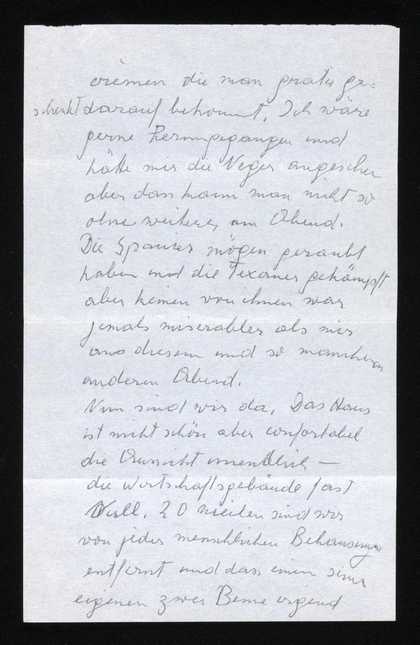 crèmen die man gratis ge=
schenkt darauf bekommt. Ich wäre
gerne herumgegangen und
hätte mir die Neger angesehen
aber das kann man nicht so
ohne weiteres am Abend.
Die Spanier mögen geraubt
haben und die Texaner gekämpft
aber keinen von ihnen war
jemals miserabler als mir
an diesem und so manchem
anderen Abend.
Nun sind wir da. Das Haus
ist nicht schön aber confortabel
die Aussicht unendlich –
die Wirtschaftsgebäude fast
Null. 20 Meilen sind wir
von jeder menschlichen Behausung
entfernt und dass einen seine
eigenen zwei Beine irgend